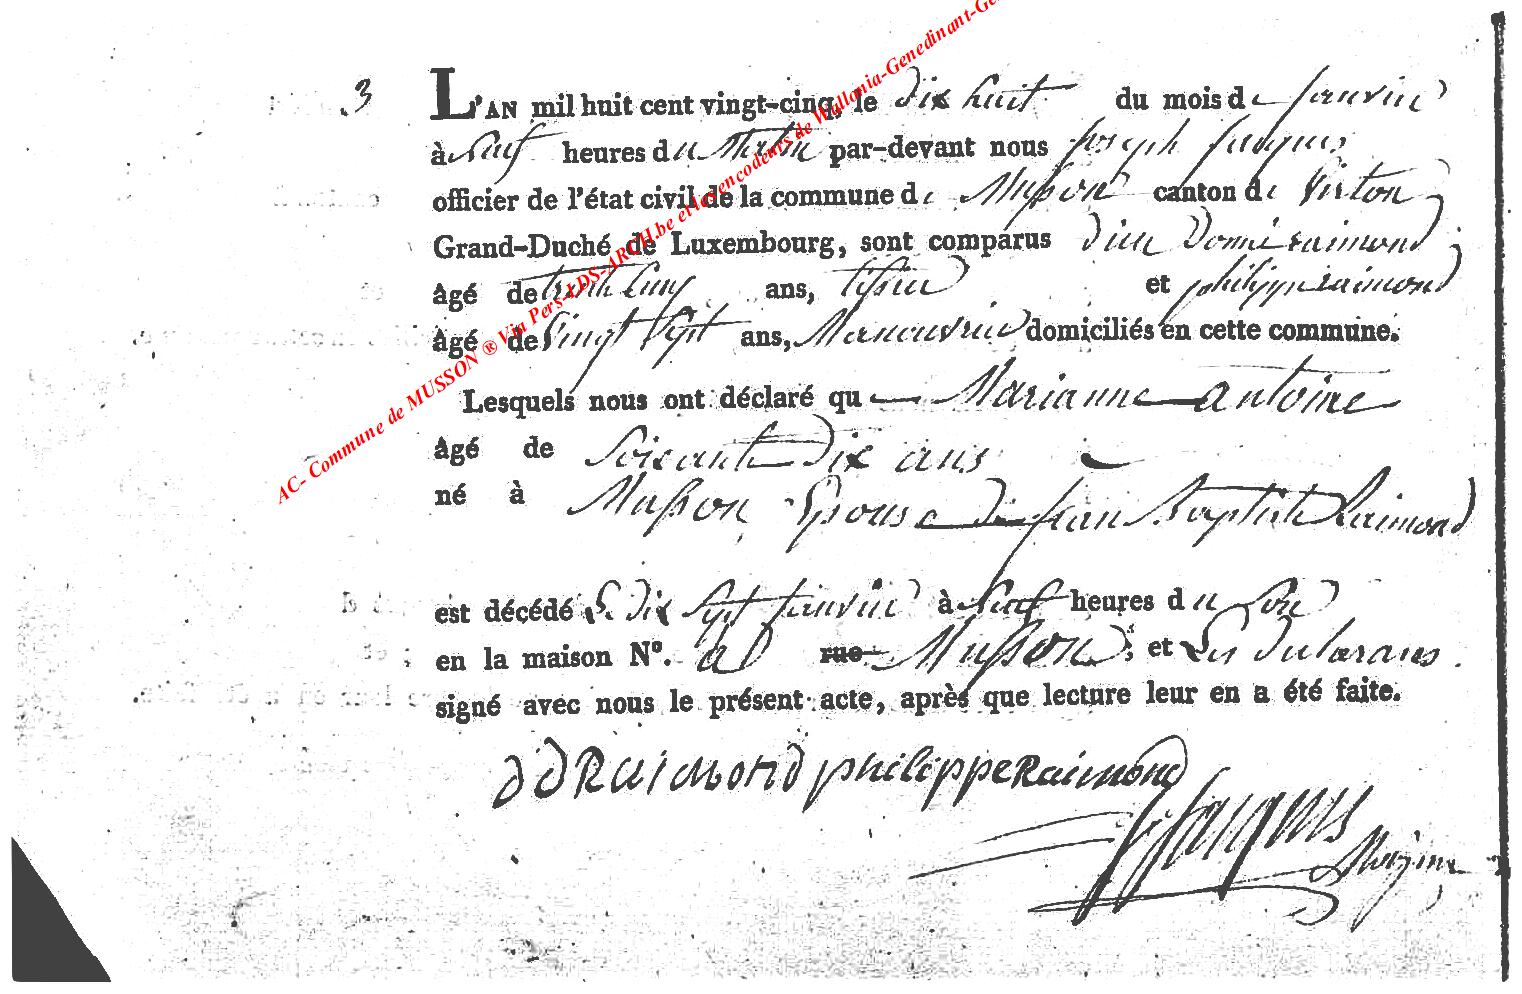 3
L'AN mil huit cent vingt-cinq, le dix huit du mois de Janvier
à neuf heures du Matin par-devant nous Joseph Jacques
officier de l'état civil de la commune de Musson canton de Virton
Grand-Duché de Luxembourg, sont comparus dieu Donné raimond
âgé de trente ans, et philippe raimond
âgé de vingt Sept ans, Manouvrier domiciliés en cette commune.
Lesquels nous ont déclaré que Marianne antoine
âgé de Soixante Dix ans
né à Musson Epouse de Jean Baptiste Raimond
est décédé Le dix Sept Janvier à neuf heures du Soir
en la maison N°. rue Musson ; et Les Déclarans
signé avec nous le présent acte, après que lecture leur en a été faite.
d d Raimond philippe Raimond
J Jacques
AC- Commune de MUSSON ® Via Pers-LDS-ARCH.be et les encodeurs de Wallonia-Genedinant-Ge